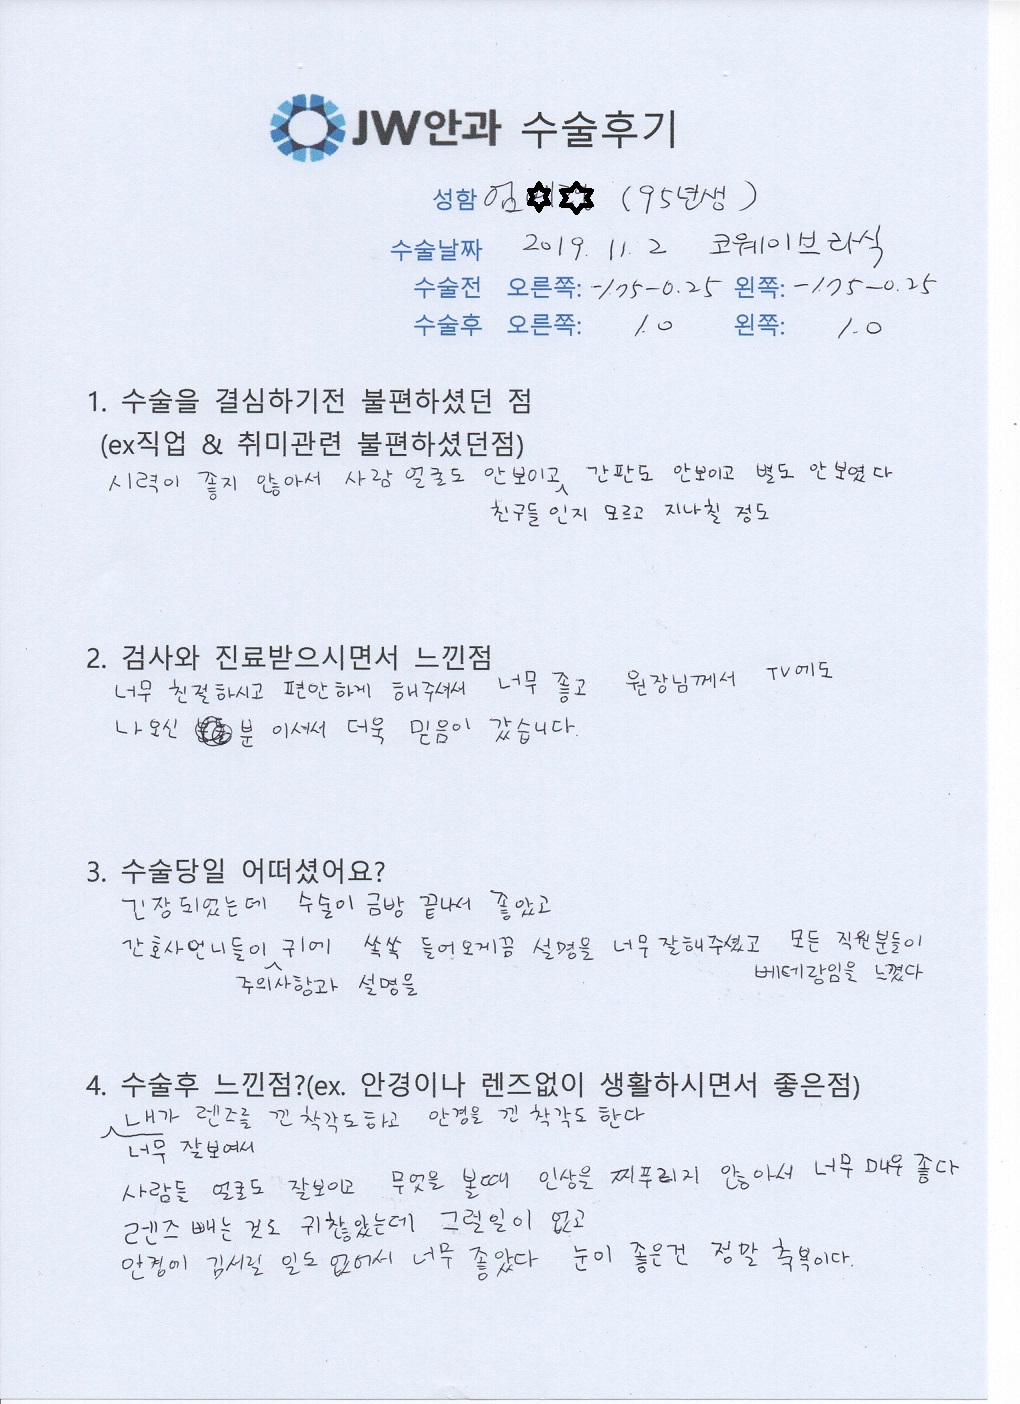 JW안과 수술후기
성함 엄 (95년생)
수술날짜 2019. 11. 2 코웨이브라식
수술전 오른쪽: -1.75-0.25 왼쪽: -1.75-0.25
수술후 오른쪽: 1.0 왼쪽: 1.0
1. 수술을 결심하기전 불편하셨던 점
(ex직업 & 취미관련 불편하셨던점)
시력이 좋지 않아서 사람 얼굴도 안보이고 간판도 안보이고 별도 안보였다
친구들인지 모르고 지나칠 정도
2. 검사와 진료받으시면서 느낀점
너무 친절하시고 편안하게 해주셔서 너무 좋고 원장님께서 TV에도
나오신 분 이셔서 더욱 믿음이 갔습니다.
3. 수술당일 어떠셨어요?
긴장되었는데 수술이 금방 끝나서 좋았고
간호사언니들이 귀에 쏙쏙 들어오게끔 설명을 너무 잘해주셨고 모든 직원분들이
주의사항과 설명을 베테랑임을 느꼈다
4. 수술후 느낀점?(ex. 안경이나 렌즈없이 생활하시면서 좋은점)
내가 렌즈를 낀 착각도하고 안경을 낀 착각도 한다
너무 잘보여서
사람들 얼굴도 잘보이고 무엇을 볼때 인상을 찌푸리지 않아서 너무 매우 좋다
렌즈 빼는 것도 귀찮았는데 그럴일이 없고
안경에 김서릴 일도 없어서 너무 좋았다 눈이 좋은건 정말 축복이다.